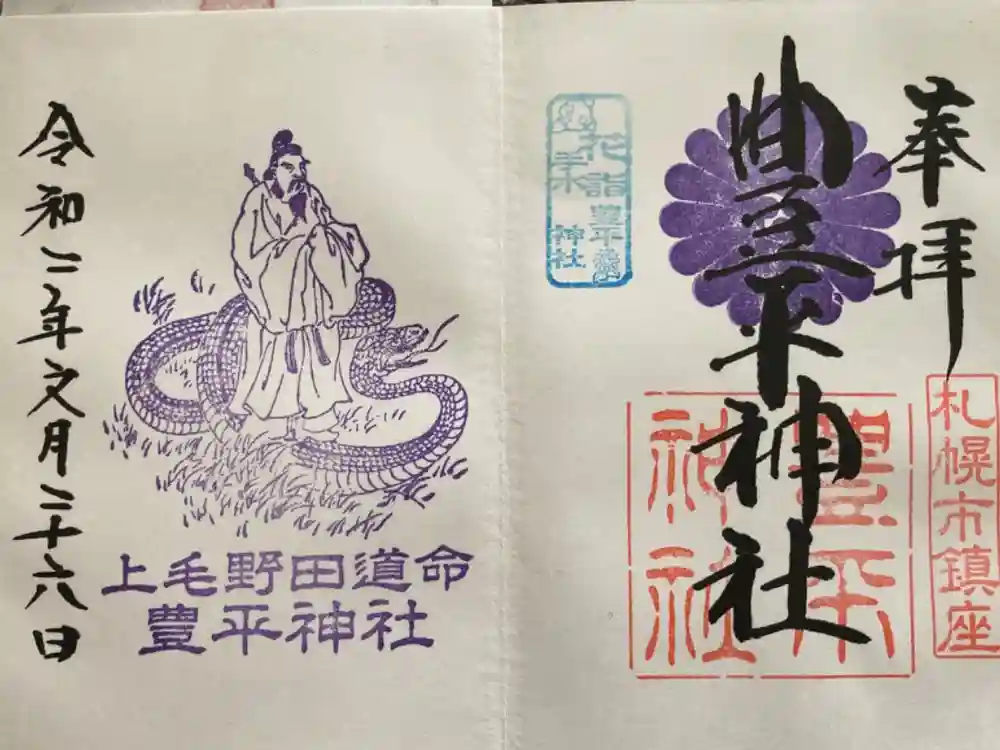 奉拝
豊平神社
札幌市鎮座
豊平
神社
花詣
花手水
豊平
神社
令和二年文月二十六日
上毛野田道命
豊平神社